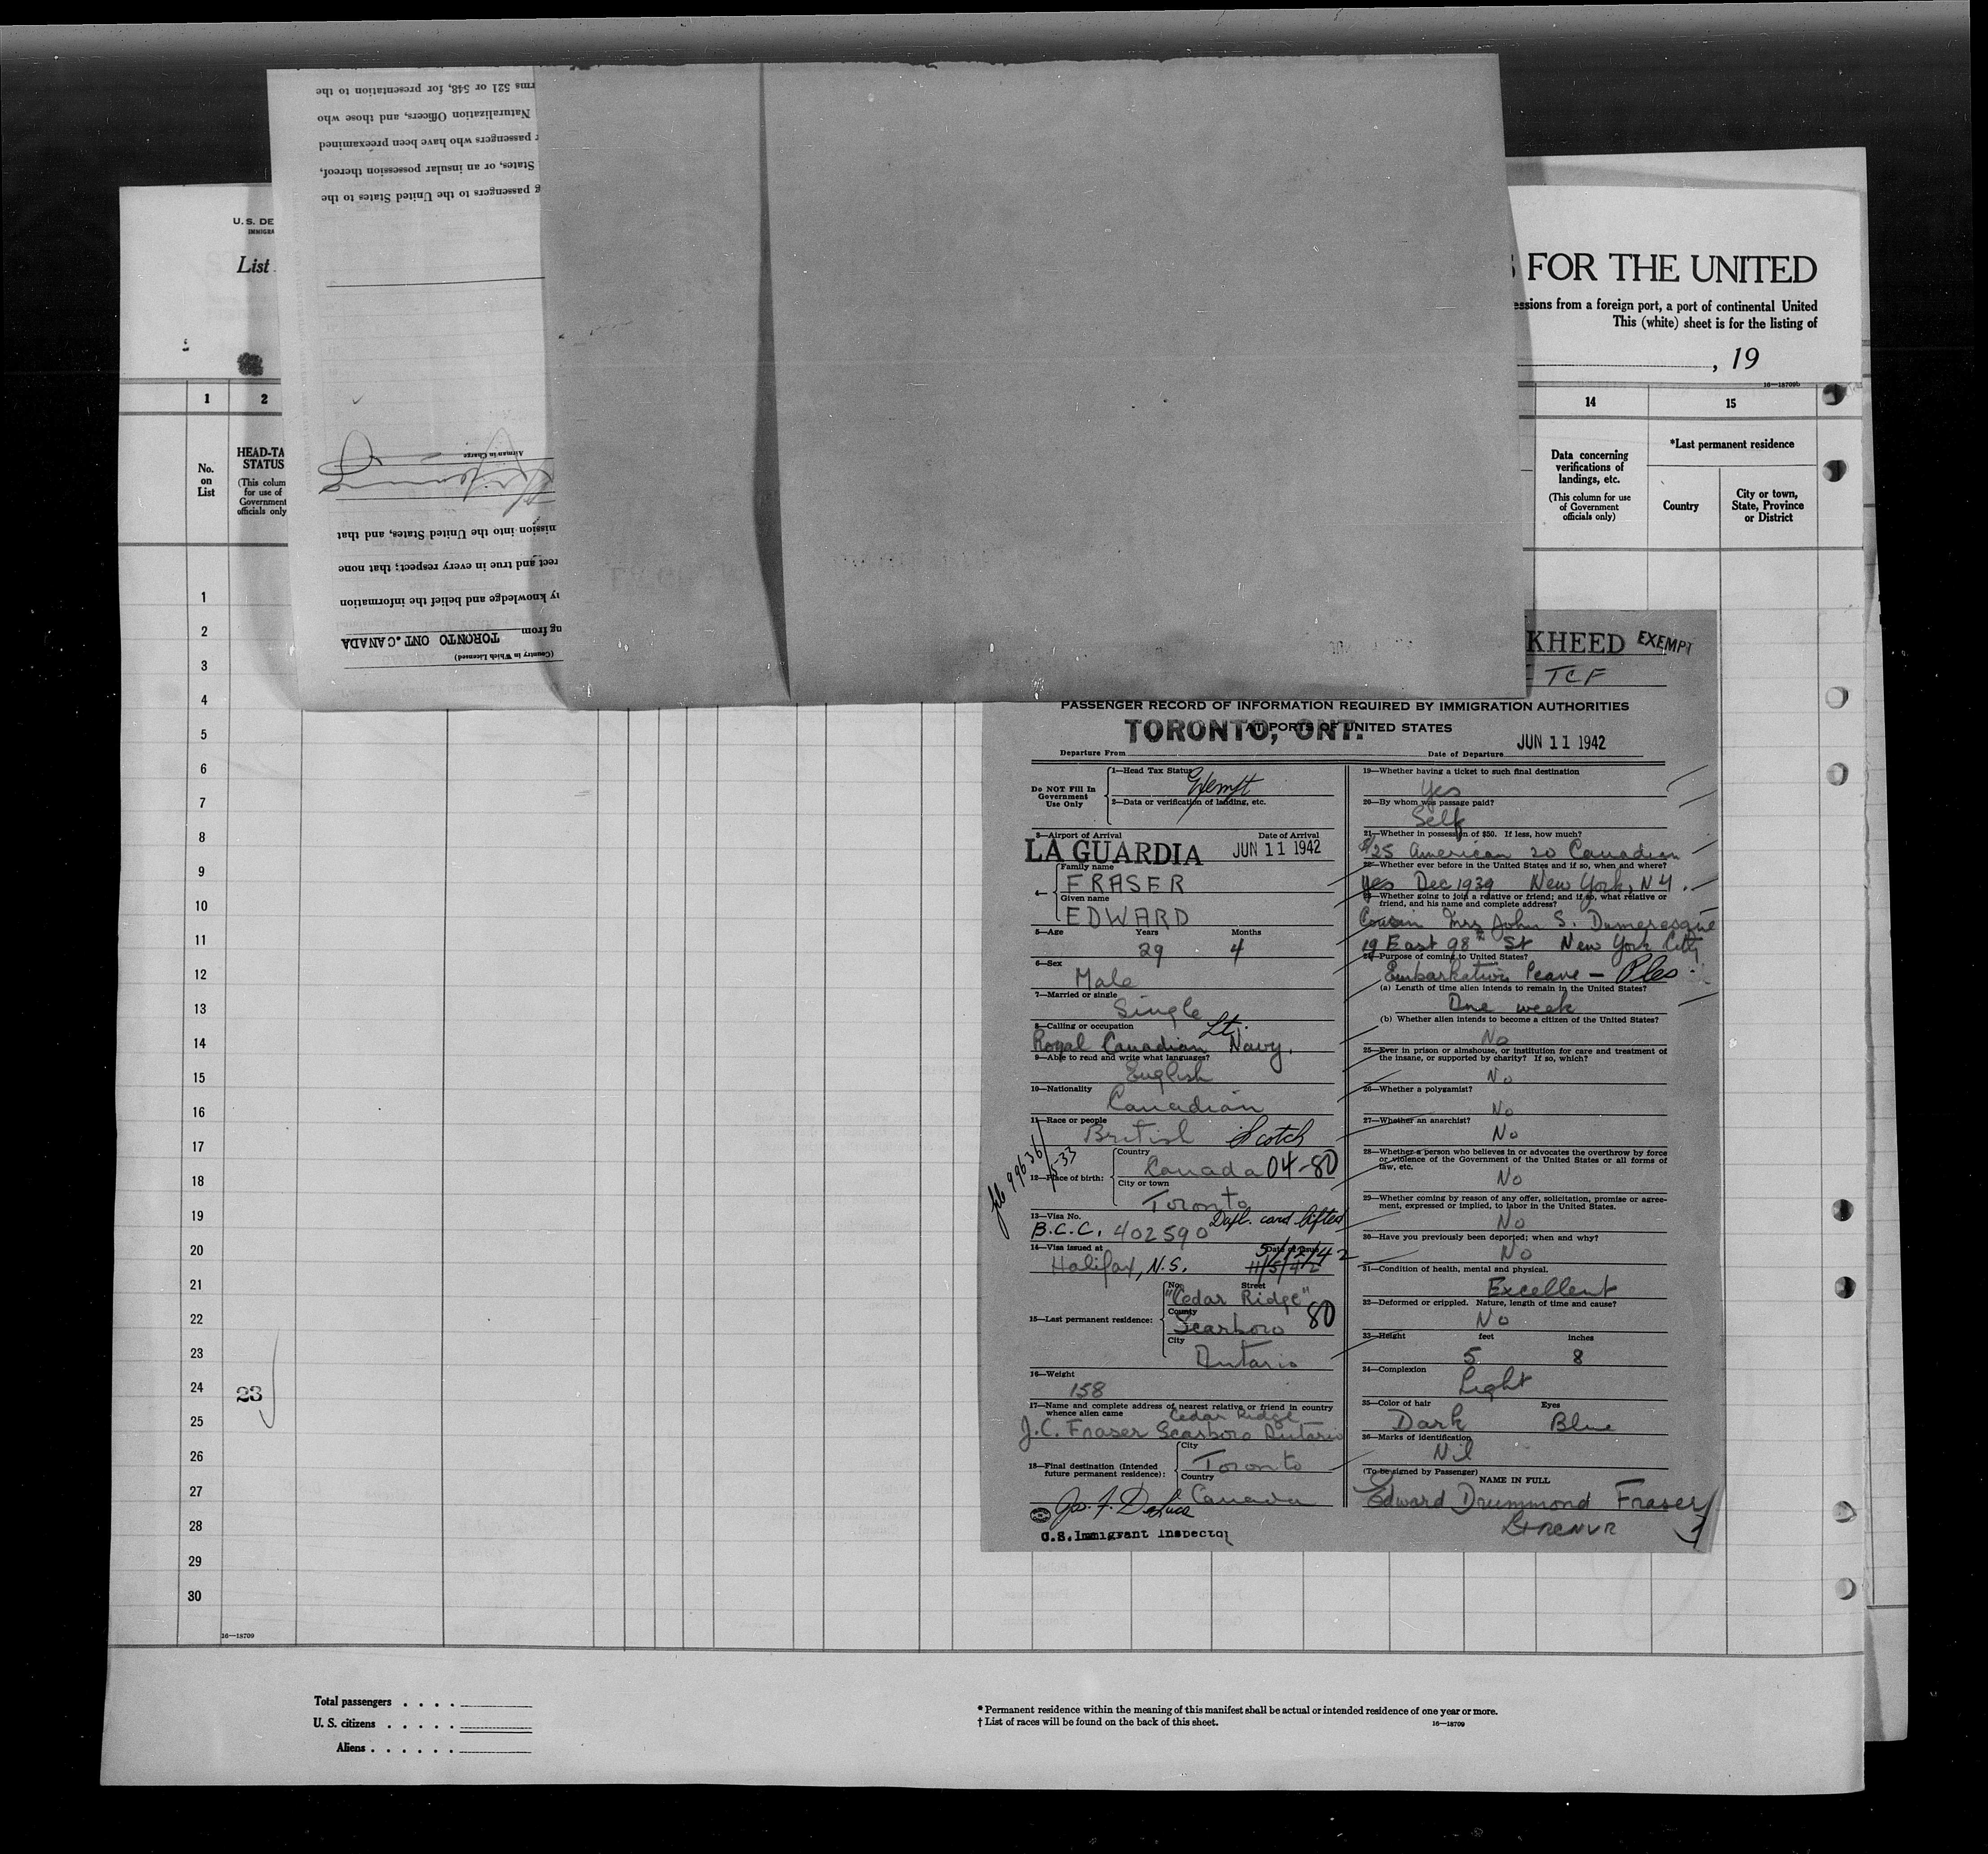 rms 521 or 548, for presentation to the
Naturalization Officers, and those who
r passengers who have been preexamined
States, or an insular possession thereof,
g passengers to the United States to the
Airman in Charge
mission into the United States, and that
rect and true in every respect; that none
ny knowledge and belief the information
ng from TORONTO ONT. CANADA
(Country in Which Licensed)
U. S. DE
IMMIGRA
List
S FOR THE UNITED
essions from a foreign port, a port of continental United
This (white) sheet is for the listing of
, 19
16—18709b
1 2 14 15
No. on List
HEAD-TA
STATUS
(This colum
for use of
Government
officials only
Data concerning
verifications of
landings, etc.
(This column for use
of Government
officials only)
*Last permanent residence
Country
City or town,
State, Province
or District
1
2
3
4
5
6
7
8
9
10
11
12
13
14
15
16
17
18
19
20
21
22
23
24 23
25
26
27
28
29
30
16—18709
KHEED EXEMPT
TCF
PASSENGER RECORD OF INFORMATION REQUIRED BY IMMIGRATION AUTHORITIES
AT PORTS OF UNITED STATES
Departure From TORONTO, ONT. Date of Departure JUN 11 1942
Do NOT Fill In
Government
Use Only
1—Head Tax Status Exempt
2—Data or verification of landing, etc.
3—Airport of Arrival Date of Arrival
LA GUARDIA JUN 11 1942
4— Family name
FRASER
Given name
EDWARD
5—Age Years Months
29 4
6—Sex
Male
7—Married or single
Single
8—Calling or occupation Lt.
Royal Canadian Navy.
9—Able to read and write what languages?
English
10—Nationality
Canadian
11—Race or people
British Scotch
12—Place of birth: Country
Canada 04-80
City or town
Toronto
13—Visa No.
B.C.C. 402590 Dupl. card lifted
14—Visa issued at Date of issue 5/12/42
Halifax, N.S. 11/5/42
15—Last permanent residence: No. Street
"Cedar Ridge"
County
Scarboro 80
City
Ontario
16—Weight
158
17—Name and complete address of nearest relative or friend in country
whence alien came Cedar Ridge
J.C. Fraser Scarboro Ontario
18—Final destination (Intended
future permanent residence):
City
Toronto
Country
Canada
U.S. Immigrant Inspector
19—Whether having a ticket to such final destination
Yes
20—By whom was passage paid?
Self
21—Whether in possession of $50. If less, how much?
$25 American 20 Canadian
22—Whether ever before in the United States and if so, when and where?
Yes Dec 1939 New York, N Y.
23—Whether going to join a relative or friend; and if so, what relative or
friend, and his name and complete address?
Cousin Mrs John S. Dumeresque
19 East 98th St New York City
24—Purpose of coming to United States?
Embarkation Leave — Ples.
(a) Length of time alien intends to remain in the United States?
One week
(b) Whether alien intends to become a citizen of the United States?
No
25—Ever in prison or almshouse, or institution for care and treatment of
the insane, or supported by charity? If so, which?
No
26—Whether a polygamist?
No
27—Whether an anarchist?
No
28—Whether a person who believes in or advocates the overthrow by force
or violence of the Government of the United States or all forms of
law, etc.
No
29—Whether coming by reason of any offer, solicitation, promise or agree-
ment, expressed or implied, to labor in the United States.
No
30—Have you previously been deported; when and why?
No
31—Condition of health, mental and physical.
Excellent
32—Deformed or crippled. Nature, length of time and cause?
No
33—Height feet inches
5 8
34—Complexion
Light
35—Color of hair Eyes
Dark Blue
36—Marks of identification
Nil
(To be signed by Passenger) NAME IN FULL
Edward Drummond Fraser
Lt RCNVR
Total passengers . . . .
U. S. citizens . . . . .
Aliens . . . . . .
* Permanent residence within the meaning of this manifest shall be actual or intended residence of one year or more.
† List of races will be found on the back of this sheet.
16—18709